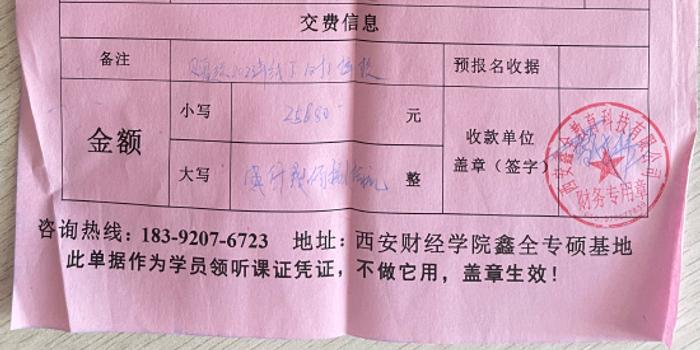 交费信息
备注 预报名收据
小写 25880 元
金额
收款单位
盖章（签字）
大写 整
财务专用章
咨询热线：183-9207-6723 地址：西安财经学院鑫全专硕基地
此单据作为学员领听课证凭证，不做它用，盖章生效！